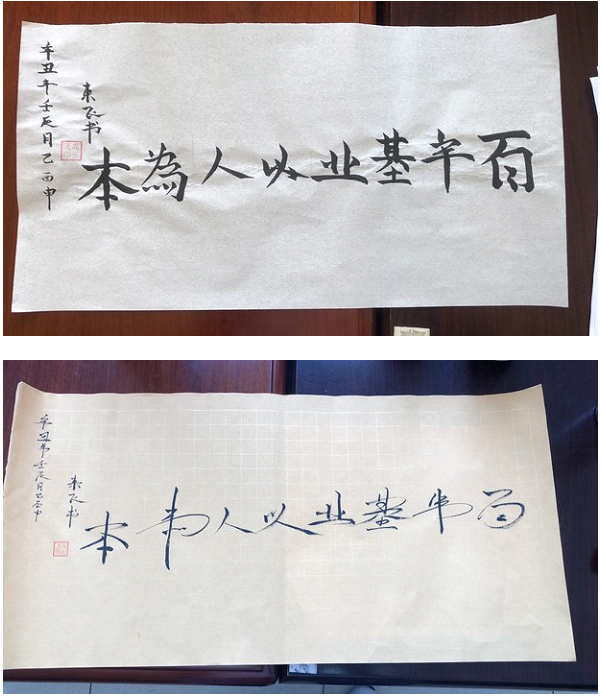 百年基业以人為本
飞书
辛丑年壬辰月己酉申
百年基业以人為本
飞书
辛丑年壬辰月己酉申